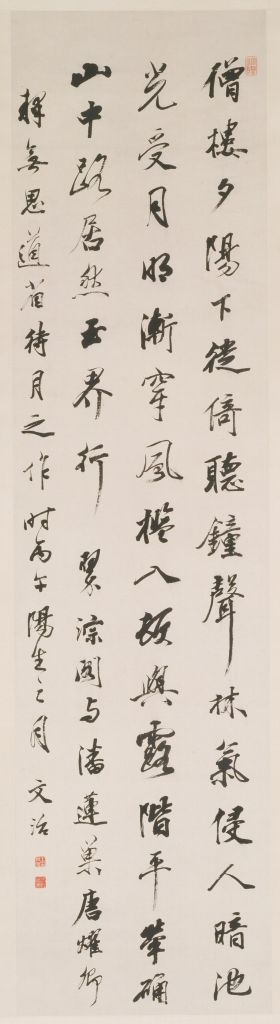 僧樓夕陽下徙倚聽鐘聲林氣侵人暗池
光受月明漸穿風檻入故與露階平犖确
山中路居然玉界行 翠淙閣与潘蓮巢唐耀卿
無思道者待月之作時丙午陽生之月 文治